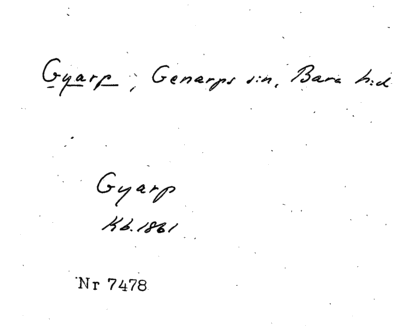 Gyarp ; Genarps s:n, Bara h:d
Gyarp
Kb. 1861
Nr 7478